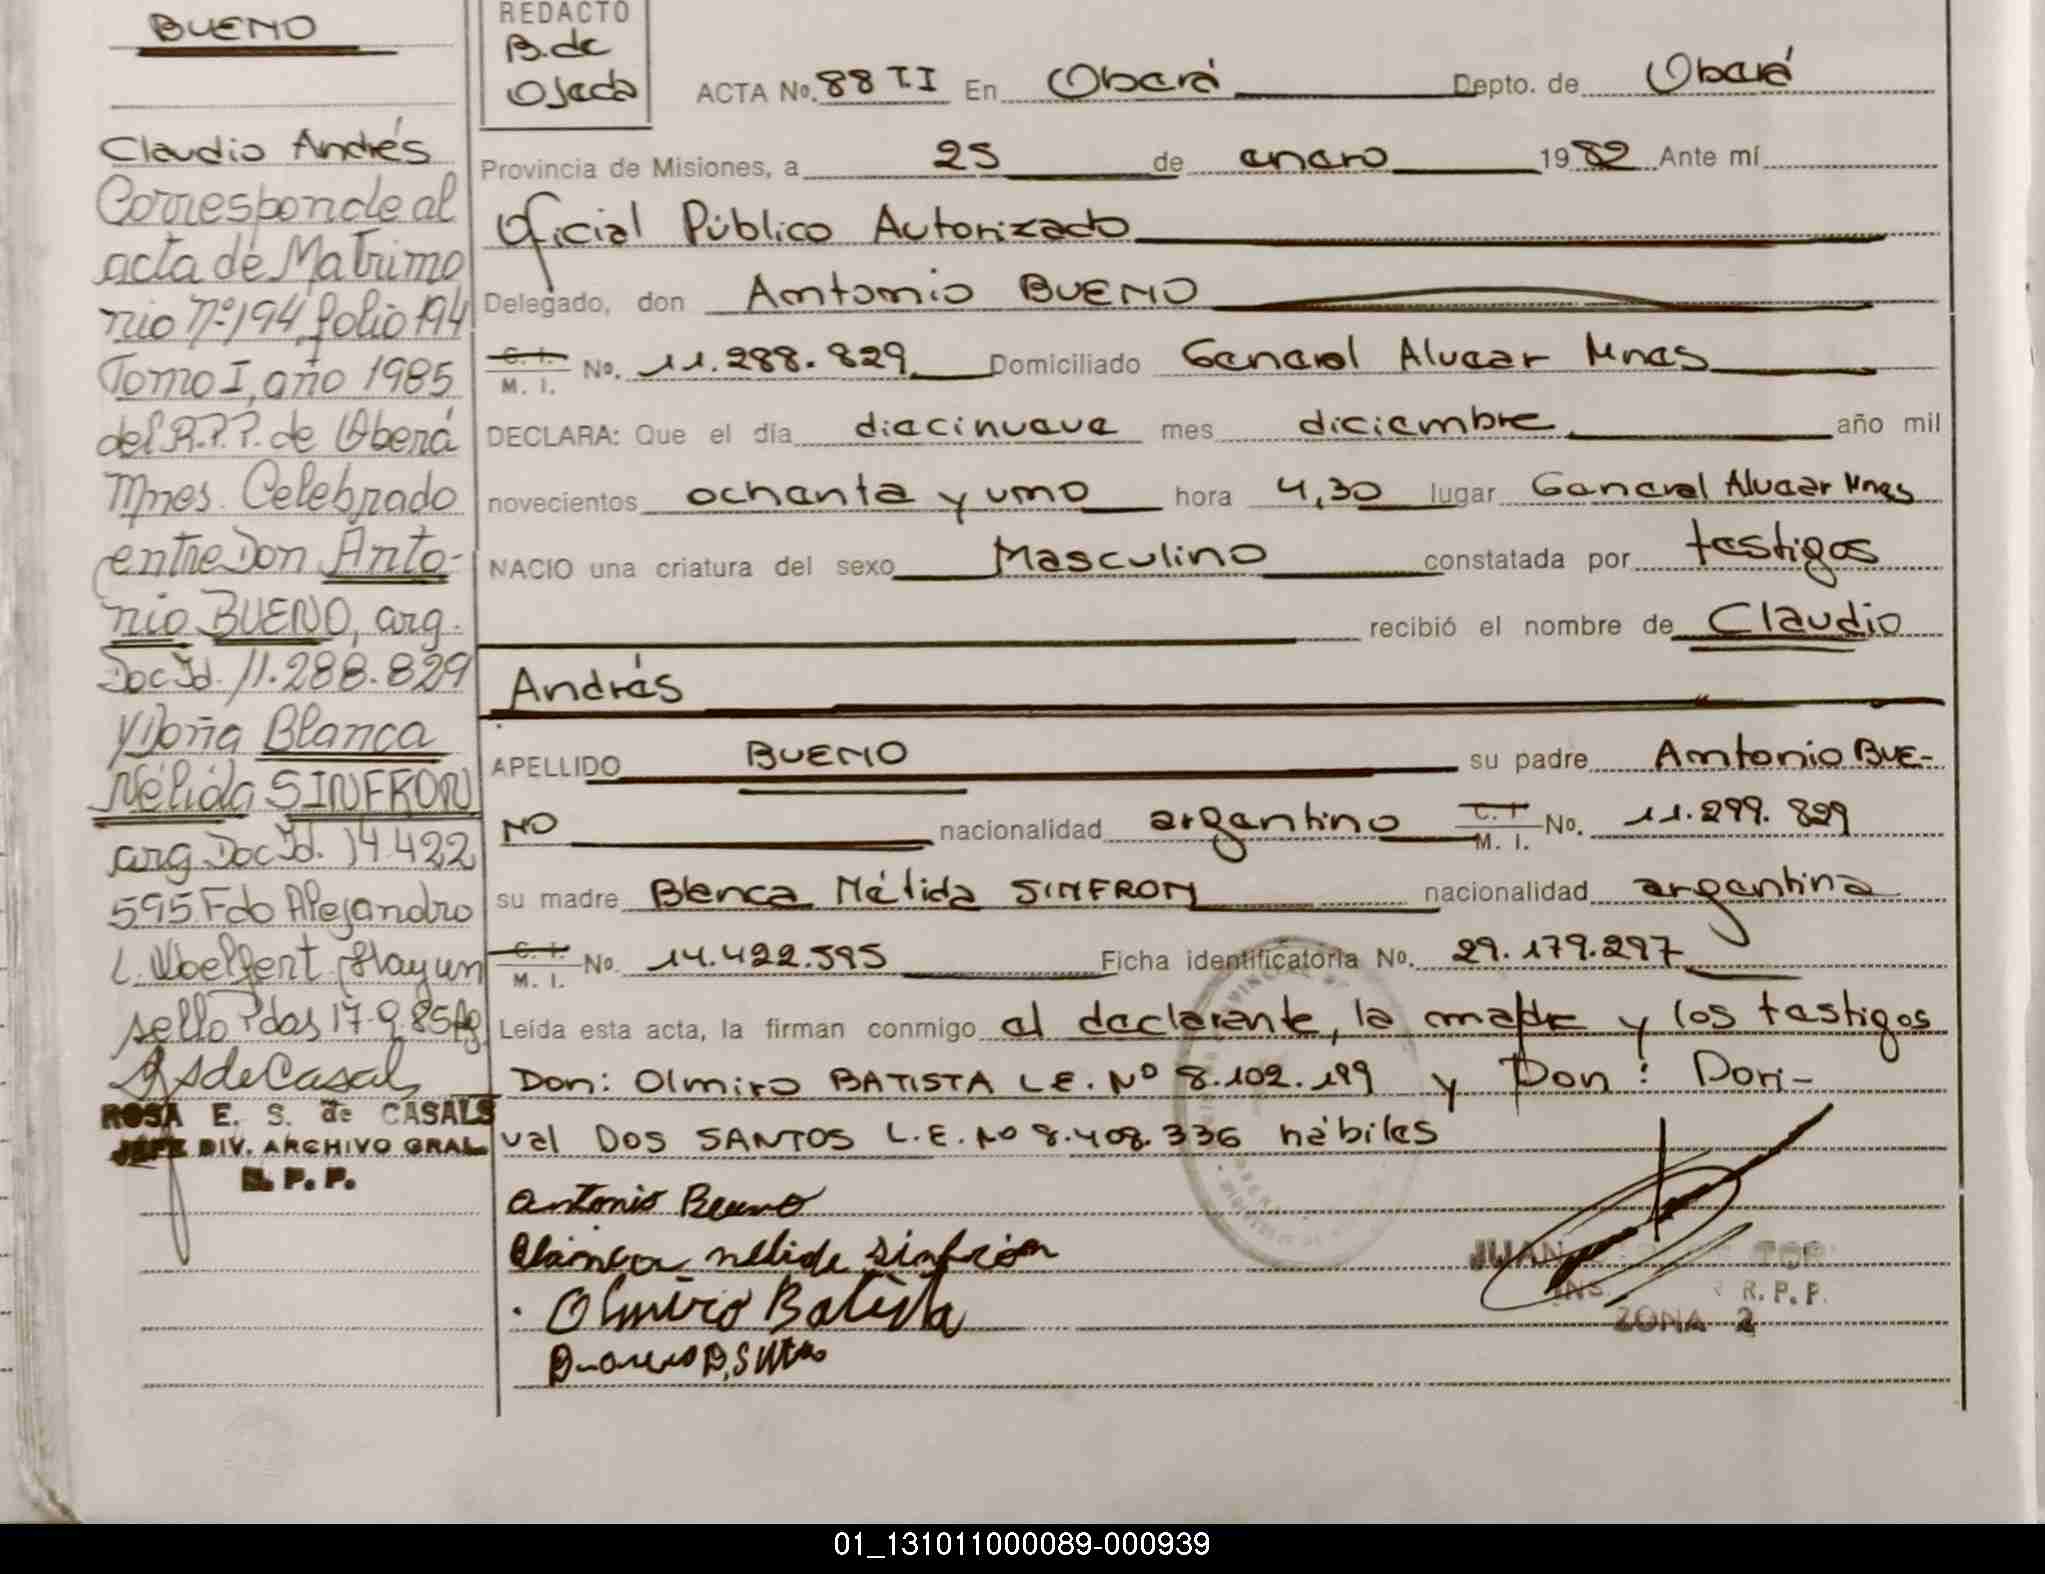 BUENO
Claudio Andrés
Corresponde al
acta de Matrimo
nio Nº 194 folio 194
Tomo I, año 1985
del R.P.P. de Oberá
Mnes. Celebrado
entre Don Anto-
nio BUENO, arg.
Doc Id. 11.288.829
y Doña Blanca
Nélida SINFRON
arg Doc Id. 14.422
595 Fdo Alejandro
L. Hay un
sello Pdas 17-9-85
ROSA E. S. de CASALS
JEFE DIV. ARCHIVO GRAL.
R. P. P.
REDACTO
B. de
Ojeda
ACTA No. 88 T.I En Oberá Depto. de Oberá
Provincia de Misiones, a 25 de enero 1982 Ante mí
Oficial Público Autorizado
Delegado, don Antonio BUENO
C. I.
M. I. No. 11.288.829 Domiciliado General Alvear Mnes
DECLARA: Que el día diecinueve mes diciembre año mil
novecientos ochenta y uno hora 4,30 lugar General Alvear Mnes
NACIO una criatura del sexo Masculino constatada por testigos
recibió el nombre de Claudio
Andrés
APELLIDO BUENO su padre Antonio BUE-
NO nacionalidad argentino C. I.
M. I. No. 11.299.829
su madre Blanca Nélida SINFRON nacionalidad argentina
C. I.
M. I. No. 14.422.595 Ficha identificatoria No. 29.179.297
Leída esta acta, la firman conmigo el declarante, la madre y los testigos
Don: Olmiro BATISTA L.E. Nº 8.102.199 y Don: Dori-
val DOS SANTOS L.E. Nº 8.408.336 hábiles
Antonio Bueno
Blanca nelida sinfron
Olmiro Batista
JUAN
R. P. P.
ZONA 2
01_131011000089-000939